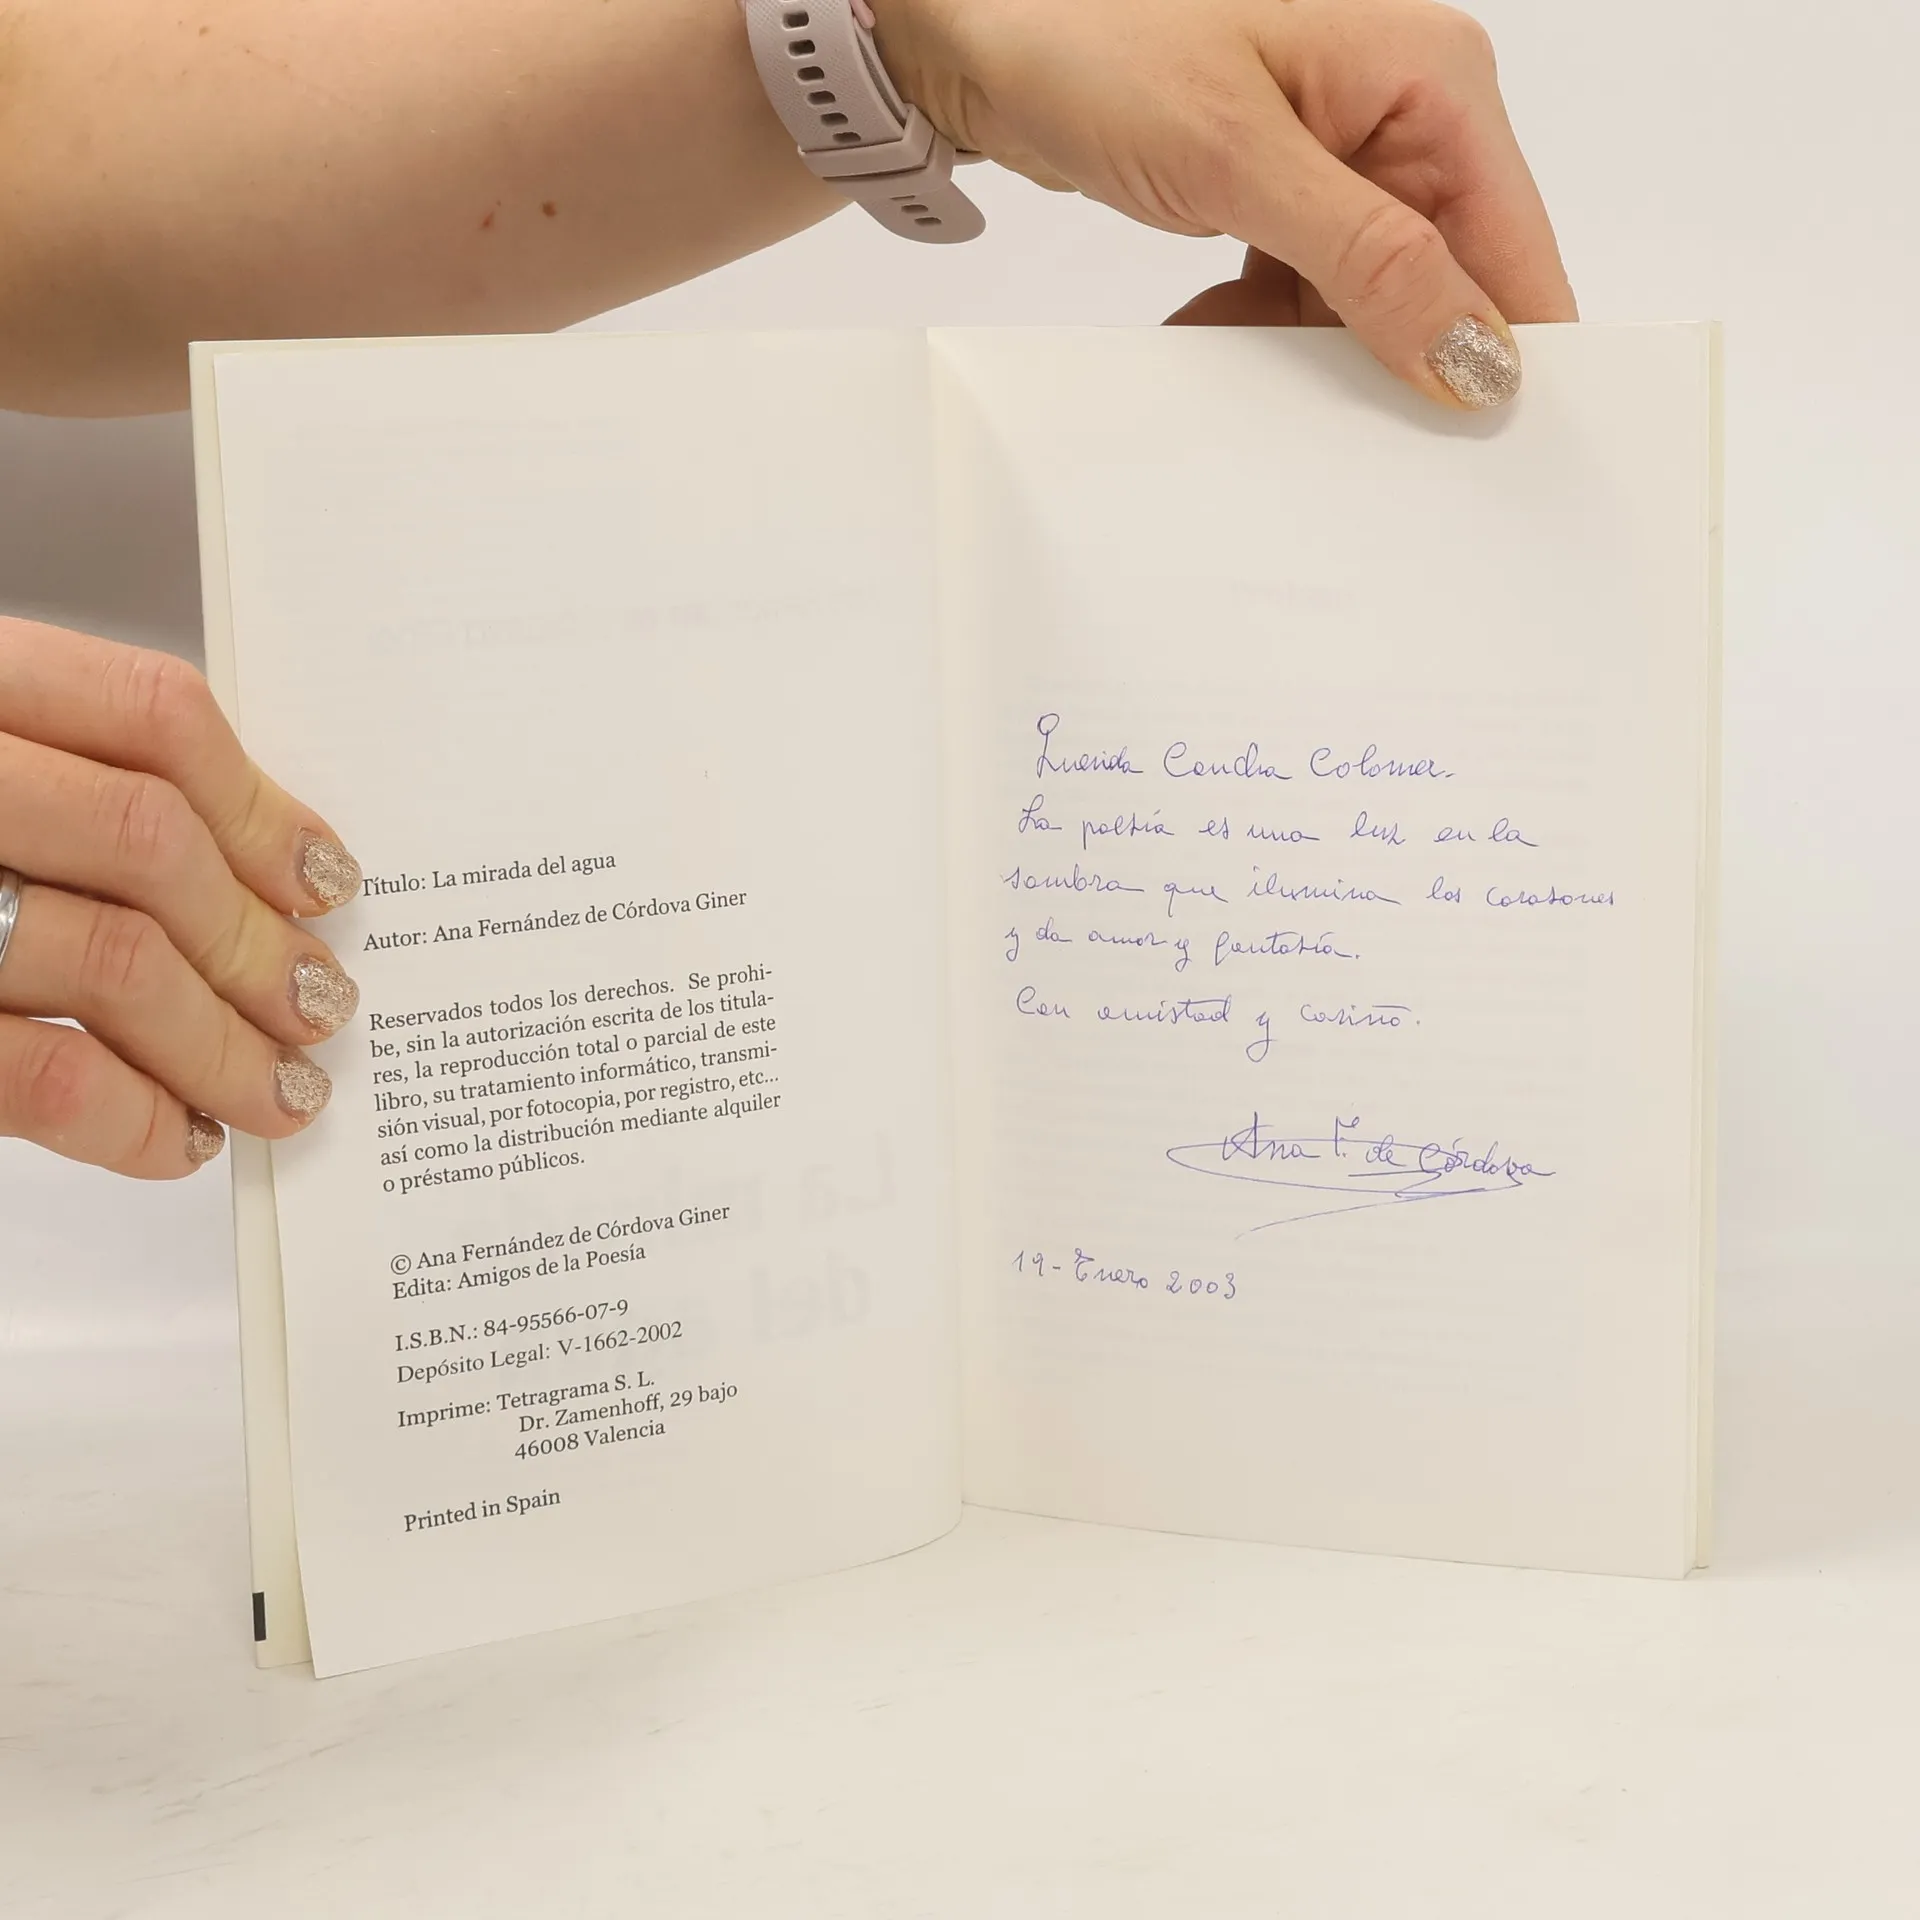 Título: La mirada del agua
Autor: Ana Fernández de Córdova Giner
Reservados todos los derechos. Se prohi-
be, sin la autorización escrita de los titula-
res, la reproducción total o parcial de este
libro, su tratamiento informático, transmi-
sión visual, por fotocopia, por registro, etc...
así como la distribución mediante alquiler
o préstamo públicos.
© Ana Fernández de Córdova Giner
Edita: Amigos de la Poesía
I.S.B.N.: 84-95566-07-9
Depósito Legal: V-1662-2002
Imprime: Tetragrama S. L.
Dr. Zamenhoff, 29 bajo
46008 Valencia
Printed in Spain
Querida Concha Colomer.
La poesía es una luz en la
sombra que ilumina los corasones
y da amor y fantasía.
Con amistad y cariño.
Ana F. de Córdova
19-Enero 2003